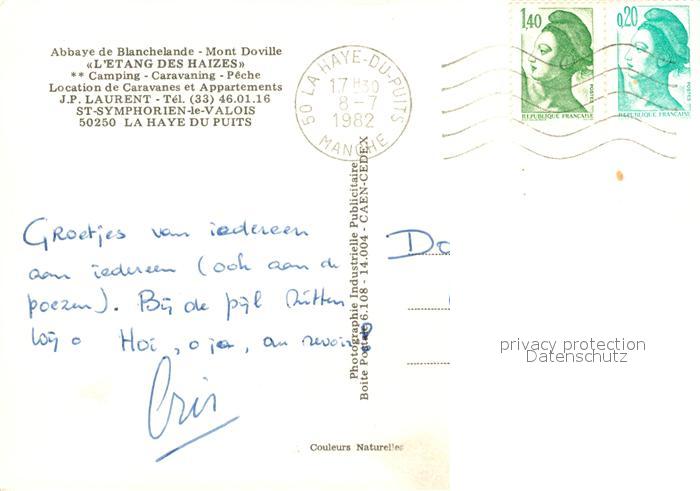 Abbaye de Blanchelande - Mont Doville
«L'ETANG DES HAIZES»
** Camping - Caravaning - Pêche
Location de Caravanes et Appartements
J.P. LAURENT - Tél. (33) 46.01.16
ST-SYMPHORIEN-le-VALOIS
50250 LA HAYE DU PUITS
50 LA HAYE-DU-PUITS
17H30
8-7
1982
MANCHE
1,40
POSTES
REPUBLIQUE FRANÇAISE
0,20
POSTES
REPUBLIQUE FRANÇAISE
Groetjes van iedereen
aan iedereen (ook aan de
poezen). Bij de pijl zitten
wij o Hoi, o ja, au revoir!
Cris
Photographie Industrielle Publicitaire
Boite Postale 6.108 - 14.004 - CAEN-CEDEX
Do
privacy protection
Datenschutz
Couleurs Naturelles